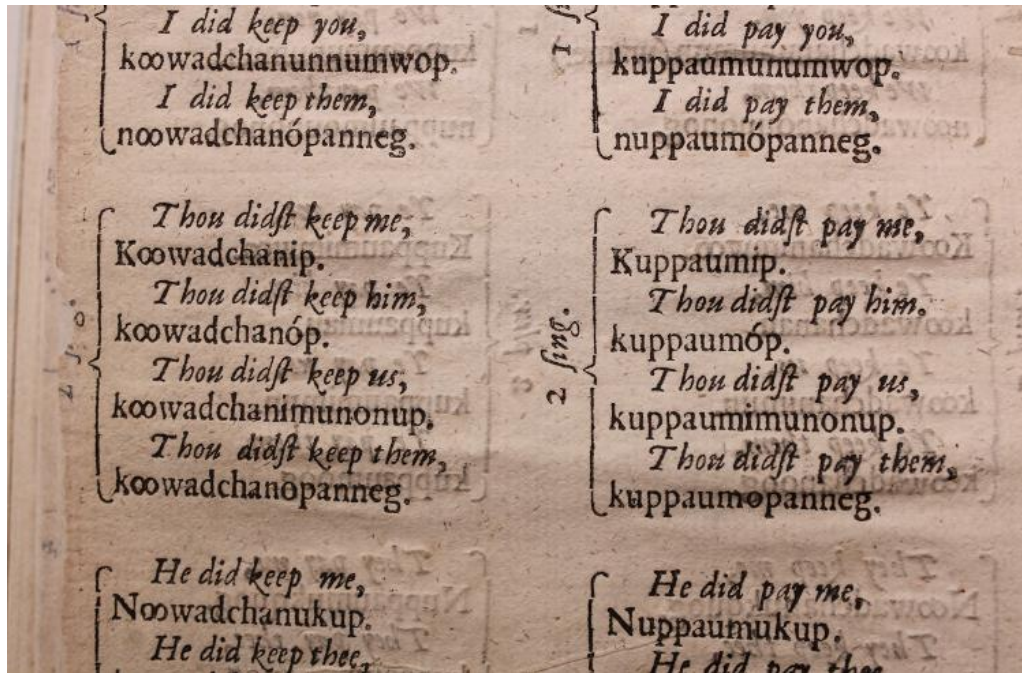 I did keep you,
koowadchanunnumwop.
I did keep them,
noowadchanópanneg.
Thou didſt keep me,
Koowadchanip.
Thou didſt keep him,
koowadchanóp.
Thou didſt keep us,
koowadchanimunonup.
Thou didſt keep them,
koowadchanópanneg.
He did keep me,
Noowadchanukup.
He did keep thee,
I did pay you,
kuppaumunumwop.
I did pay them,
nuppaumópanneg.
2 ſing.
Thou didſt pay me,
Kuppaumip.
Thou didſt pay him.
kuppaumóp.
Thou didſt pay us,
kuppaumimunonup.
Thou didſt pay them,
kuppaumopanneg.
He did pay me,
Nuppaumukup.
He did pay thee